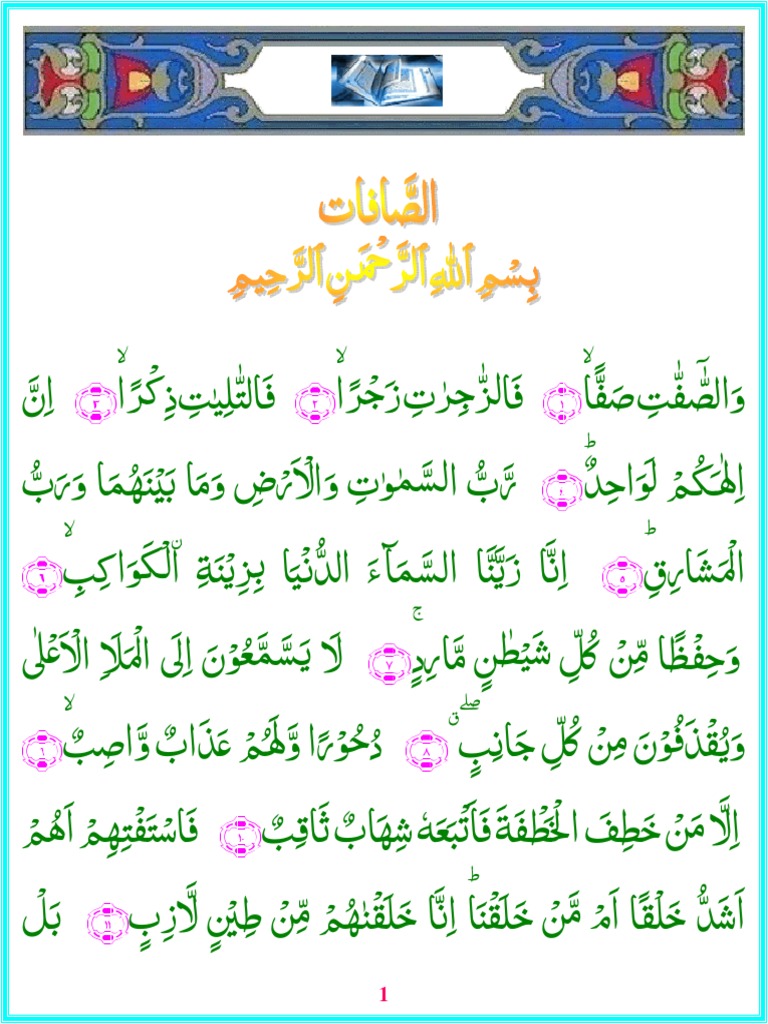 الصَّافات
بِسْمِ ٱللهِ ٱلرَّحْمَـنِ ٱلرَّحِيمِ
وَالصّٰٓفّٰتِ صَفًّاۙ ۝١ فَالزّٰجِرٰتِ زَجْرًاۙ ۝٢ فَالتّٰلِيٰتِ ذِكْرًاۙ ۝٣ اِنَّ
اِلٰهَكُمْ لَوَاحِدٌؕ ۝٤ رَبُّ السَّمٰوٰتِ وَالْاَرْضِ وَمَا بَيْنَهُمَا وَرَبُّ
الْمَشَارِقِؕ ۝٥ اِنَّا زَيَّنَّا السَّمَآءَ الدُّنْيَا بِزِيْنَةِ ۨالْكَوَاكِبِۙ ۝٦
وَحِفْظًا مِّنْ كُلِّ شَيْطٰنٍ مَّارِدٍۚ ۝٧ لَا يَسَّمَّعُوْنَ اِلَى الْمَلَاِ الْاَعْلٰى
وَيُقْذَفُوْنَ مِنْ كُلِّ جَانِبٍۖۗ ۝٨ دُحُوْرًا وَّلَهُمْ عَذَابٌ وَّاصِبٌۙ ۝٩
اِلَّا مَنْ خَطِفَ الْخَطْفَةَ فَاَتْبَعَهٗ شِهَابٌ ثَاقِبٌ ۝١٠ فَاسْتَفْتِهِمْ اَهُمْ
اَشَدُّ خَلْقًا اَمْ مَّنْ خَلَقْنَاؕ اِنَّا خَلَقْنٰهُمْ مِّنْ طِيْنٍ لَّازِبٍ ۝١١ بَلْ
1